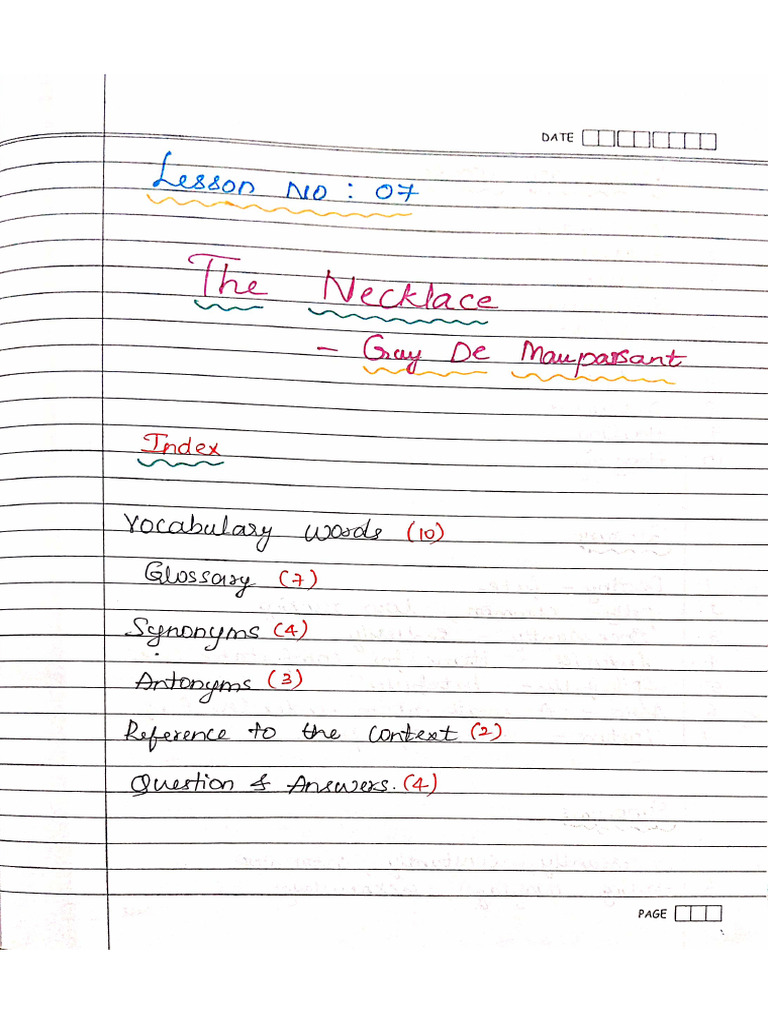 DATE
Lesson No : 07
The Necklace
- Guy De Maupassant
Index
Vocabulary words (10)
Glossary (7)
Synonyms (4)
Antonyms (3)
Reference to the context (2)
Question & Answers. (4)
PAGE